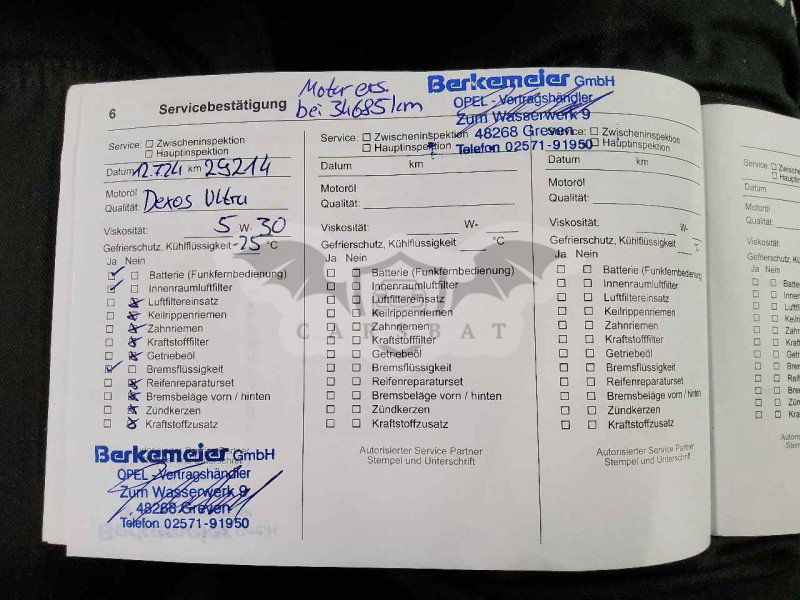 6 Servicebestätigung
Motor ers.
bei 34685 km
Berkemeier GmbH
OPEL - Vertragshändler
Zum Wasserwerk 9
48268 Greven
Telefon 02571-91950
Service: ☐ Zwischeninspektion
☐ Hauptinspektion
Datum 12.7.24 km 29214
Motoröl
Qualität: Dexos Ultra
Viskosität: 5 W- 30
Gefrierschutz, Kühlflüssigkeit -25 °C
Ja Nein
Batterie (Funkfernbedienung)
Innenraumluftfilter
Luftfiltereinsatz
Keilrippenriemen
Zahnriemen
Kraftstofffilter
Getriebeöl
Bremsflüssigkeit
Reifenreparaturset
Bremsbeläge vorn / hinten
Zündkerzen
Kraftstoffzusatz
Berkemeier GmbH
OPEL - Vertragshändler
Zum Wasserwerk 9
48268 Greven
Telefon 02571-91950
Service: ☐ Zwischeninspektion
☐ Hauptinspektion
Datum km
Motoröl
Qualität:
Viskosität: W-
Gefrierschutz, Kühlflüssigkeit °C
Ja Nein
Batterie (Funkfernbedienung)
Innenraumluftfilter
Luftfiltereinsatz
Keilrippenriemen
Zahnriemen
Kraftstofffilter
Getriebeöl
Bremsflüssigkeit
Reifenreparaturset
Bremsbeläge vorn / hinten
Zündkerzen
Kraftstoffzusatz
Autorisierter Service Partner
Stempel und Unterschrift
Service: ☐ Zwischeninspektion
☐ Hauptinspektion
Datum km
Motoröl
Qualität:
Viskosität: W-
Gefrierschutz, Kühlflüssigkeit °C
Ja Nein
Batterie (Funkfernbedienung)
Innenraumluftfilter
Luftfiltereinsatz
Keilrippenriemen
Zahnriemen
Kraftstofffilter
Getriebeöl
Bremsflüssigkeit
Reifenreparaturset
Bremsbeläge vorn / hinten
Zündkerzen
Kraftstoffzusatz
Autorisierter Service Partner
Stempel und Unterschrift
CARSBAT
Service: ☐
☐
Datum
Motoröl
Qualität:
Viskosität:
Gefrierschutz,
Ja Nein